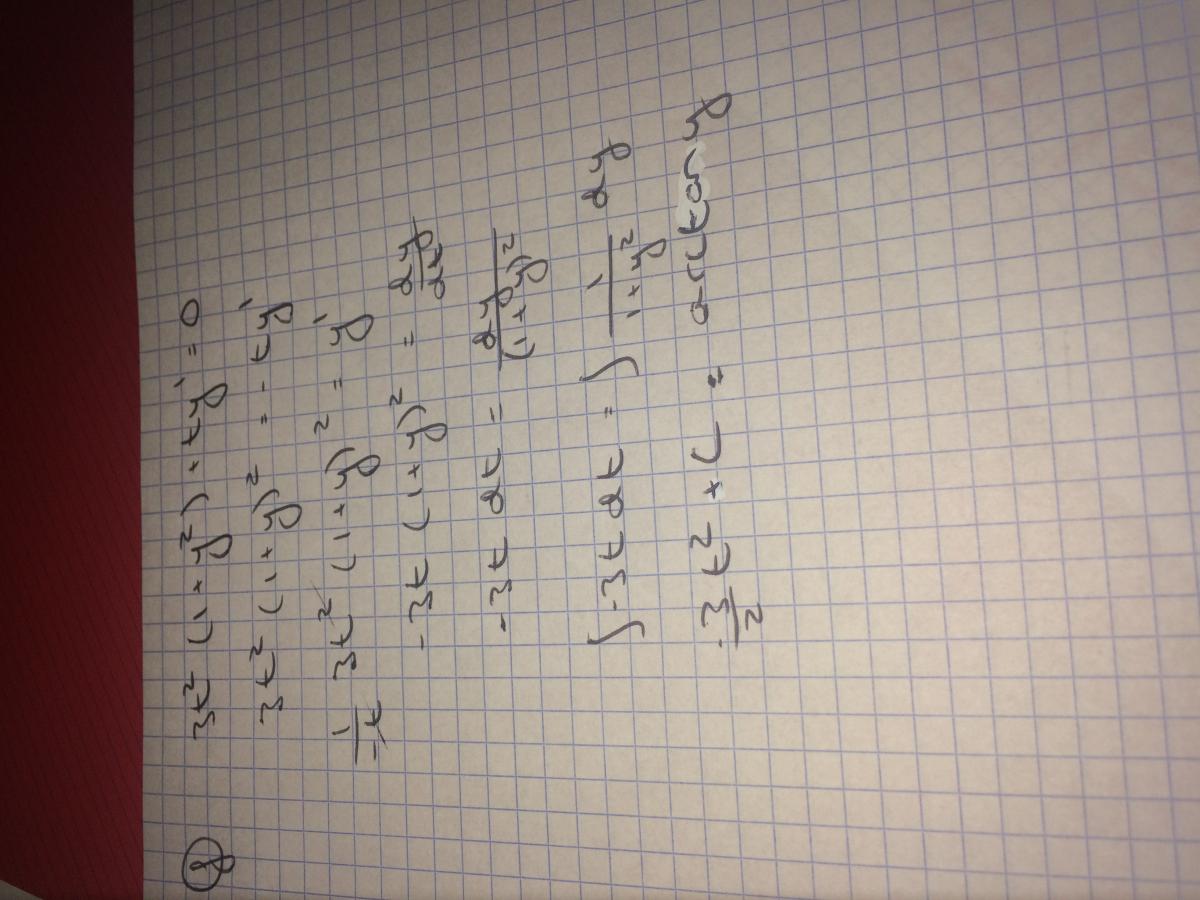 8 3t² (1+y²) + ty' = 0
3t² (1+y)² = -ty'
1/-t 3t² (1+y)² = y'
-3t (1+y)² = dy/dt
-3t dt = dy/(1+y)²
∫-3t dt = ∫ 1/1+y² dy
-3/2 t² + C = arctan y